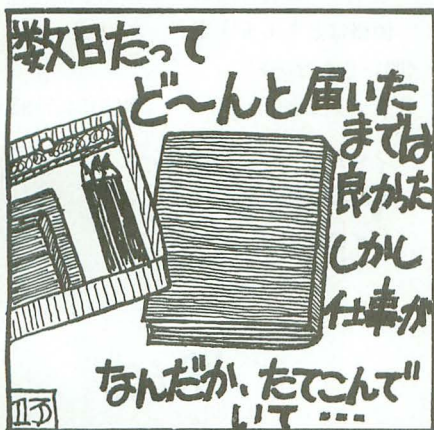 数日たって
ど〜んと届いた
までは
良かった
しかし
仕事が
なんだか、たてこんで
いて…